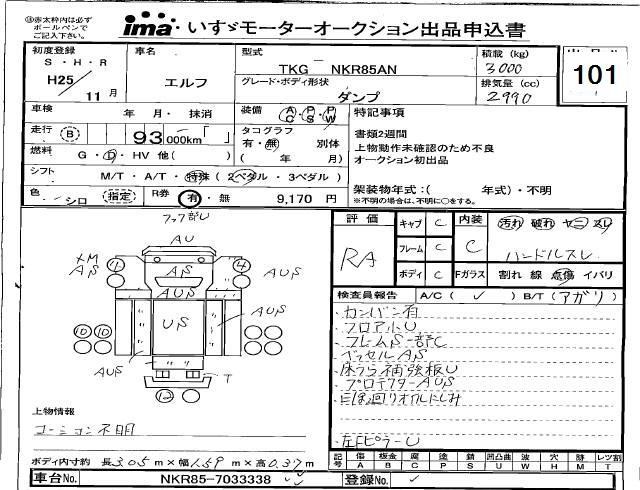 ④赤太枠内は必ず
ボールペンで
ご記入下さい。
ima いすゞモーターオークション出品申込書
初度登録
S・H・R
H25/11月
車名
エルフ
型式
TKG NKR85AN
グレード・ボディ形状
ダンプ
積載 (kg)
3000
排気量 (cc)
2990
101
車検 年 月・ 抹消
走行 B 93 000km
燃料 G・D・HV 他( )
装備 A/C・P/S・P/W
タコグラフ
有・無 別体
( 年 月)
特記事項
書類2週間
上物動作未確認のため不良
オークション初出品
シフト M/T・A/T・特殊 (2ペダル・3ペダル)
架装物年式:( 年式)・不明
※不明の場合は、不明に○をする。
色 シロ 指定
R券 有・無 9,170 円
評価
RA
キャブ C
フレーム C
ボディ C
内装
C
Fガラス
汚れ 破れ ヤニ スレ
ハンドルスレ
割れ 線 点傷 イバリ
AU
AS
4
AS
4
AUS
AUS
US
AUS
10 10
AUS
T
12
検査員報告 A/C ( ✓ ) B/T (アガリ)
・カンバン有
・フロア小U
・フレームS一部C
・ベッセルAS
・床うら補強板U
・プロテクターAUS
・左Fピラー U
上物情報
コーションの不明
ボディ内寸約 長3.05m×幅1.59m×高0.37m
記号 傷 板金 腐 塗 錆 凹凸曲 波 穴 跡 レツ割
A B C P S U W H M T
車台No. NKR85-7033338
登録No. ✓